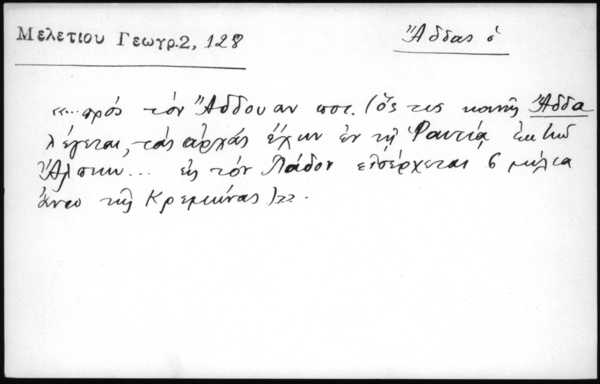 Μελετίου Γεωγρ. 2, 128
Ἄδδας ὁ
«...πρός τόν Ἄδδουαν ποτ. (ὅς τις κοινῇ Ἄδδα
λέγεται, τάς ἀρχάς ἔχων ἐν τῇ Ῥαιτίᾳ ἐκ τῶν
Ἄλπεων... εἰς τόν Πάδον εἰσέρχεται 6 μίλια
ἄνω τῆς Κρεμώνας)».